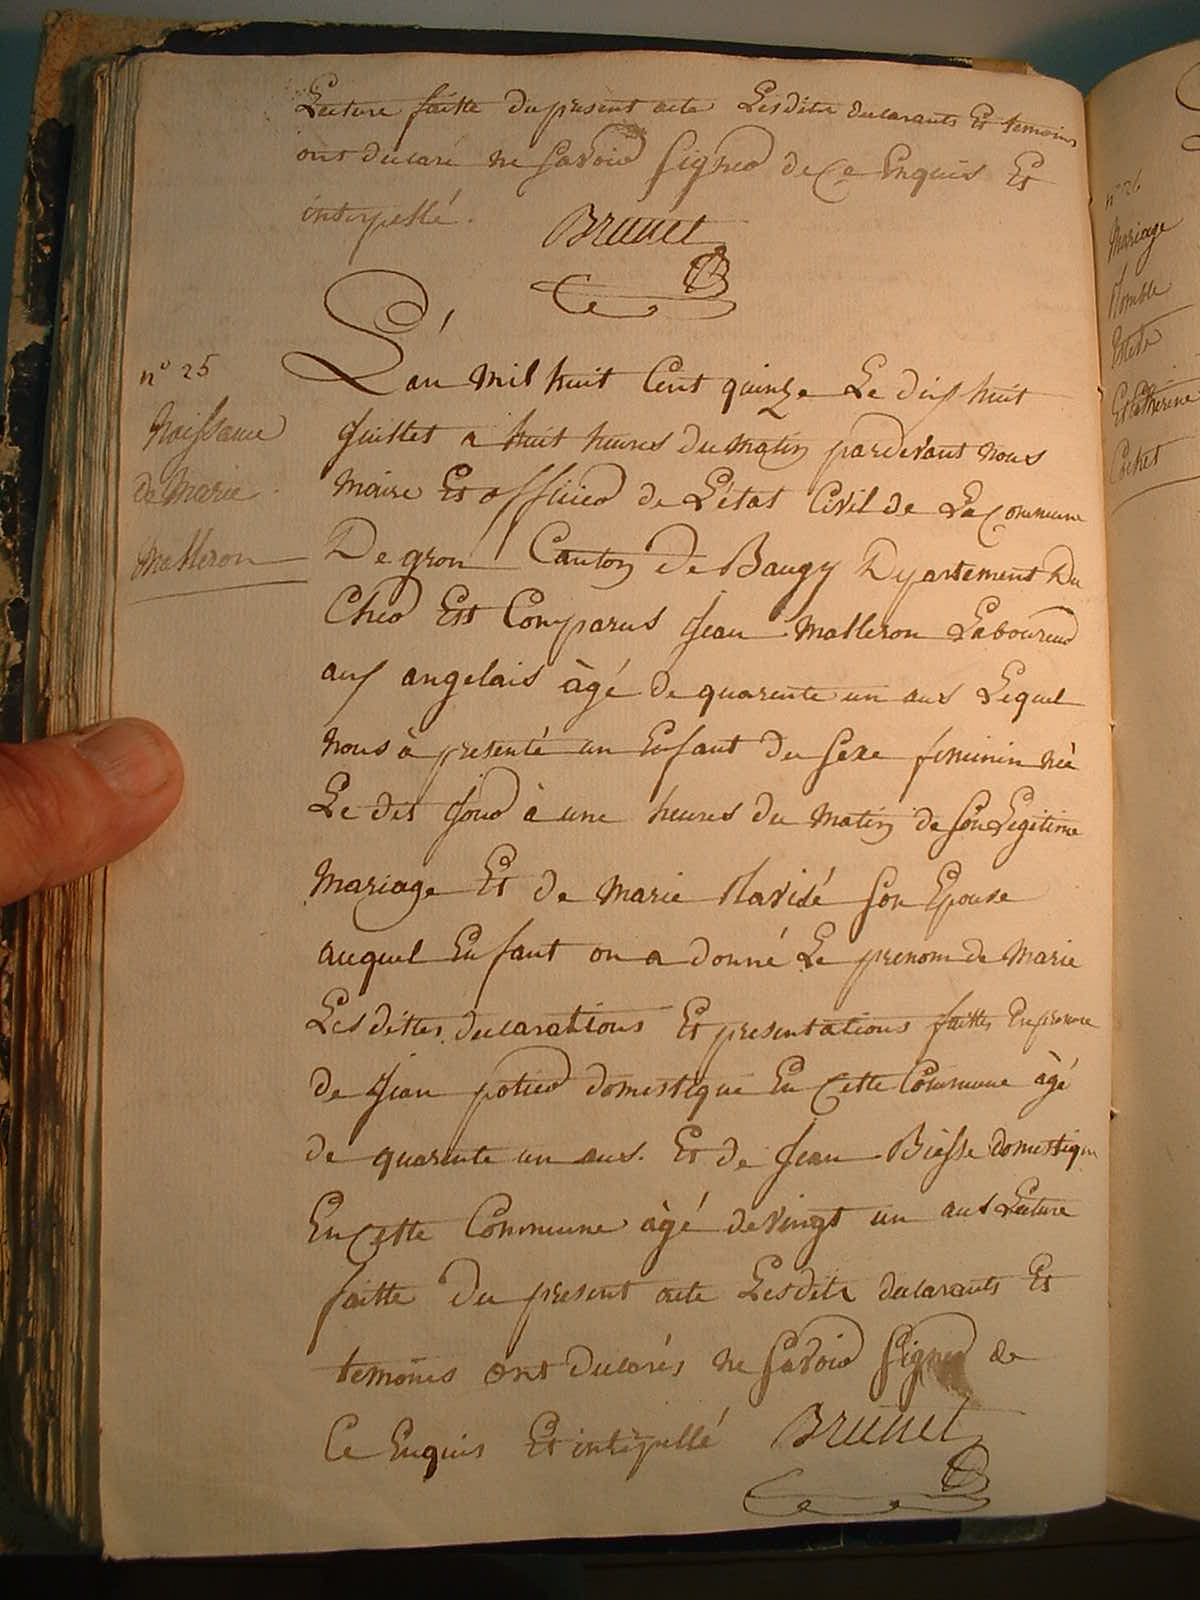 Lecture faitte du present acte Lesdits declarants Et temoins
ont declaré ne Savoir Signer de Ce Enquis Et
interpellé.
Brunet
n° 25
Naissance
de Marie
Malleron
L'an mil huit Cent quinze Le dix huit
Juillet a huit heures du matin pardevant nous
Maire Et officier de L'état Civil de La Commune
De gron Canton De Baugy Département Du
Cher Est Comparus Jean Malleron Laboureur
aux angelais àgé de quarente un ans Lequel
nous à presenté un Enfant du Sexe feminin née
Le dit Jour à une heures du matin de Son Legitime
Mariage Et de Marie Son Epouse
auquel Enfant on a donné Le prenom de Marie
Les dittes declarations Et presentations faittes En presence
de Jean potier domestique En Cette Commune àgé
de quarente un ans. Et de Jean Biesse domestique
En Cette Commune àgé de vingt un ans Lecture
faitte Du present acte Lesdits declarants Et
temoins ont Declarés ne Savoir Signer de
Ce Enquis Et intérpellé Brunet
n° 26
Mariage
Et Catherine